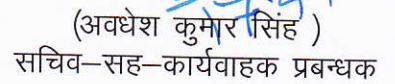 (अवधेश कुमार सिंह )
सचिव–सह–कार्यवाहक प्रबन्धक